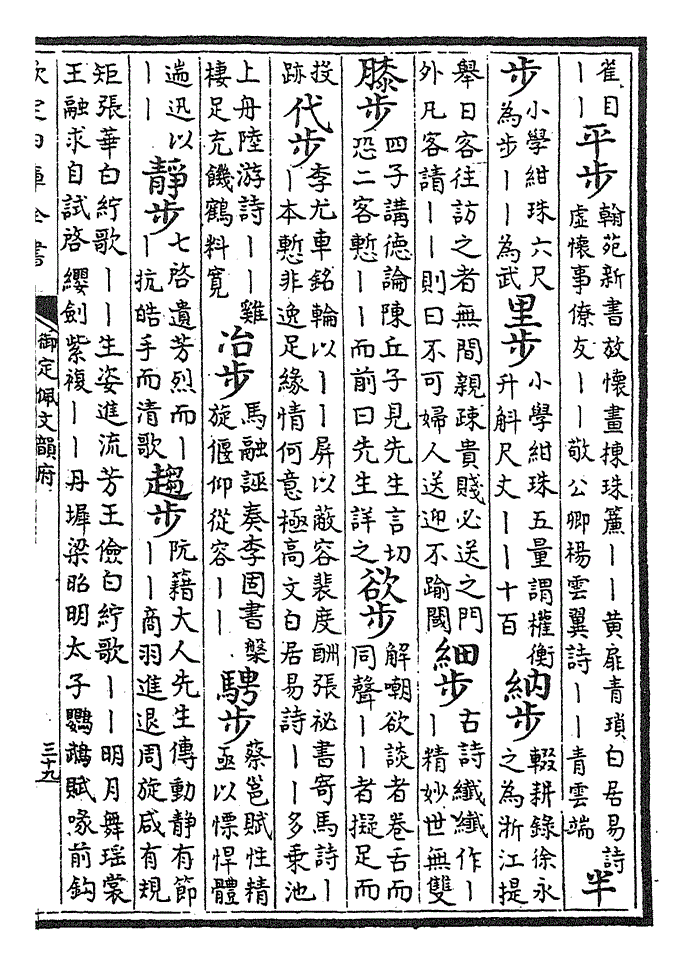 雀目
丨丨
平步
翰苑新書放懷畫棟珠簾丨丨黄扉青瑣白居易詩
虛懷事僚友丨丨敬公卿楊雲翼詩丨丨青雲端
半
步
小學紺珠六尺
為步丨丨為武
里步
小學紺珠五量謂權衡
升斛尺丈丨丨十百
納步
輟耕錄徐永
之為浙江提
舉日客往訪之者無間親疎貴賤必送之門
外凡客請丨丨則曰不可婦人送迎不踰閾
細步
古詩纖纖作丨
丨精妙世無雙
膝步
四子講德論陳丘子見先生言切
恐二客慙丨丨而前曰先生詳之
欲步
解嘲欲談者卷舌而
同聲丨丨者擬足而
投
跡
代步
李尤車銘輪以丨丨屏以蔽容裴度酬張祕書寄馬詩丨
丨本慙非逸足緣情何意極高文白居易詩丨丨多乗池
上舟陸游詩丨丨雞
棲足充饑鶴料寛
冶步
馬融誣奏李固書槃
旋偃仰從容丨丨
騁步
蔡邕賦性精
亟以慓悍體
遄迅以
丨丨
靜步
七啓遺芳烈而丨
丨抗皓手而清歌
趨步
阮籍大人先生傳動靜有節
丨丨商羽進退周旋咸有規
矩張華白紵歌丨丨生姿進流芳王儉白紵歌丨丨明月舞瑶裳
王融求自試啓纓劍紫複丨丨丹墀梁昭明太子鸚鵡賦喙前鈎
欽定四庫全書
御定佩文韻府
三十九